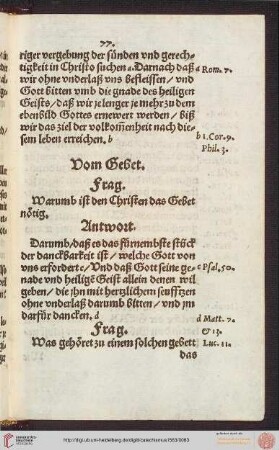 77.
tiger vergebung der sünden vnd gerech⸗
tigkeit in Christo suchen a. Darnach daß
wir ohne vnderlaß vns befleissen / vnd
Gott bitten vmb die gnade des heiligen
Geists / daß wir je lenger je mehr zu dem
ebenbild Gottes ernewert werden / biß
wir das ziel der volkom̄enheit nach die⸗
sem leben erreichen. b
a Rom. 7.
b 1. Cor. 9.
Phil. 3.
Vom Gebet.
Frag.
Warumb ist den Christen das Gebet
nötig.
Antwort.
Darumb / daß es das fürnembste stück
der danckbarkeit ist / welche Gott von
vns erforderte / Vnd daß Gott seine ge⸗
nade vnd heiligē Geist allein denen wil
geben / die jhn mit hertzlichem seufftzen
ohne vnderlaß darumb bitten / vnd jm
darfür dancken. d
c Psal. 50.
d Matt. 7.
& 13.
Luc. 11.
Frag.
Was gehöret zu einem solchen gebett
das